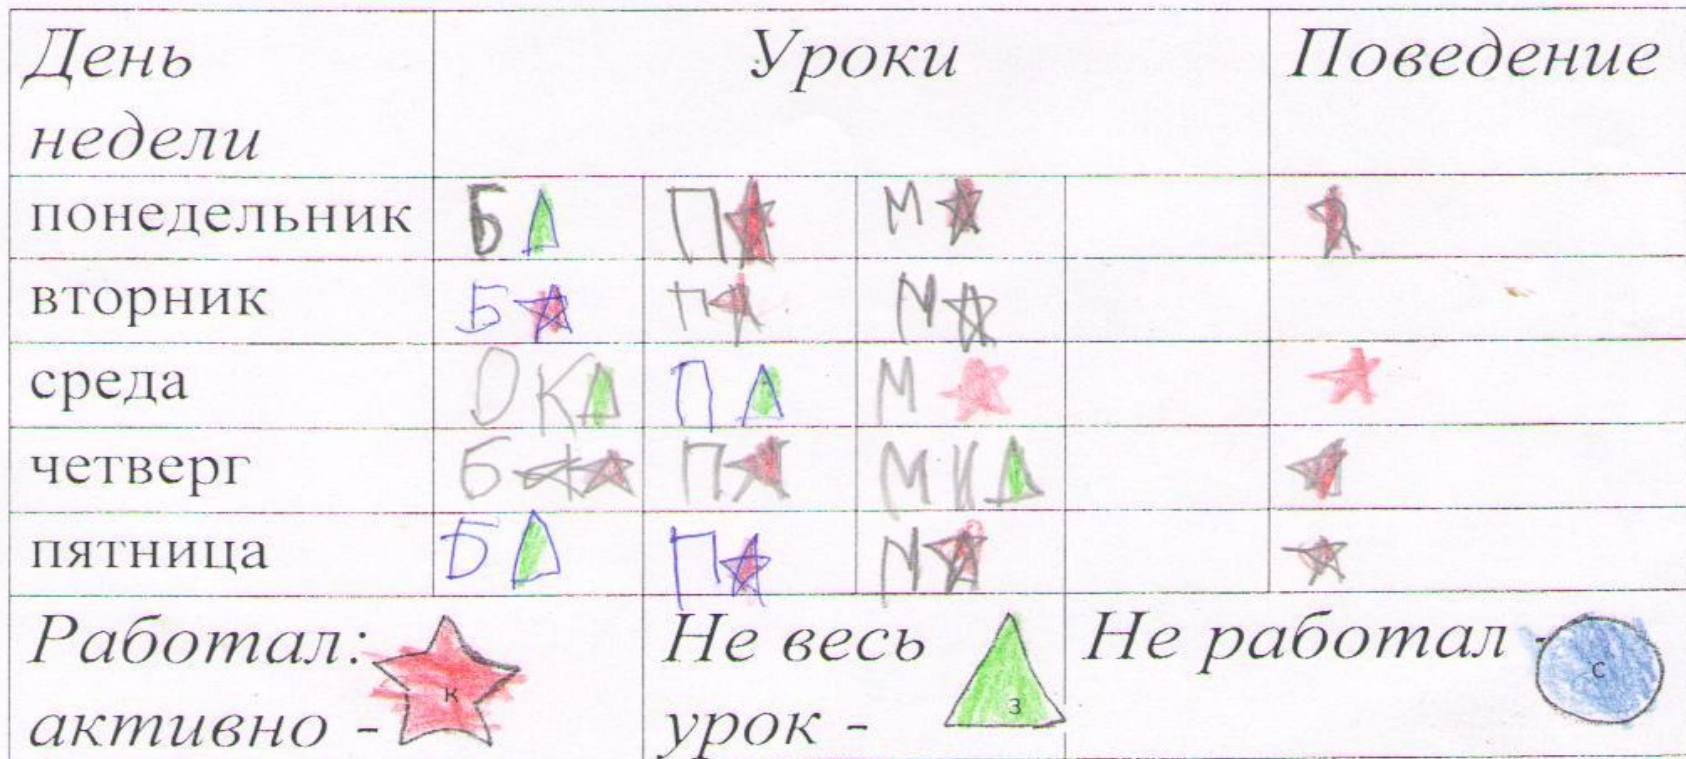 День недели Уроки Поведение
понедельник Б П М
вторник Б П М
среда О К П М
четверг Б П М К
пятница Б П М
Работал: активно - к Не весь урок - З Не работал - с